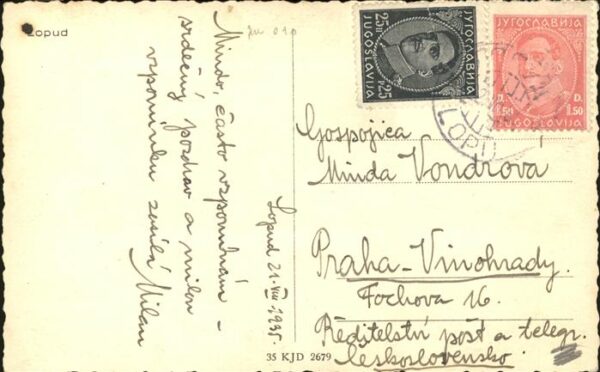 Lopud
Mindo, často vzpomínám -
srdečný pozdrav a milou
vzpomínku zasílá Milan
Lopud 21. VIII. 1935.
35 KJD 2679
25П
ЈУГОСЛАВИЈА
JUGOSLAVIJA
P.25
ЈУГОСЛАВИЈА
Д. D.
1.50 1.50
JUGOSLAVIJA
LOPUD
Gospojica
Minda Vondrová
Praha-Vinohrady.
Fochova 16.
Ředitelství pošt a telegr.
Československo.